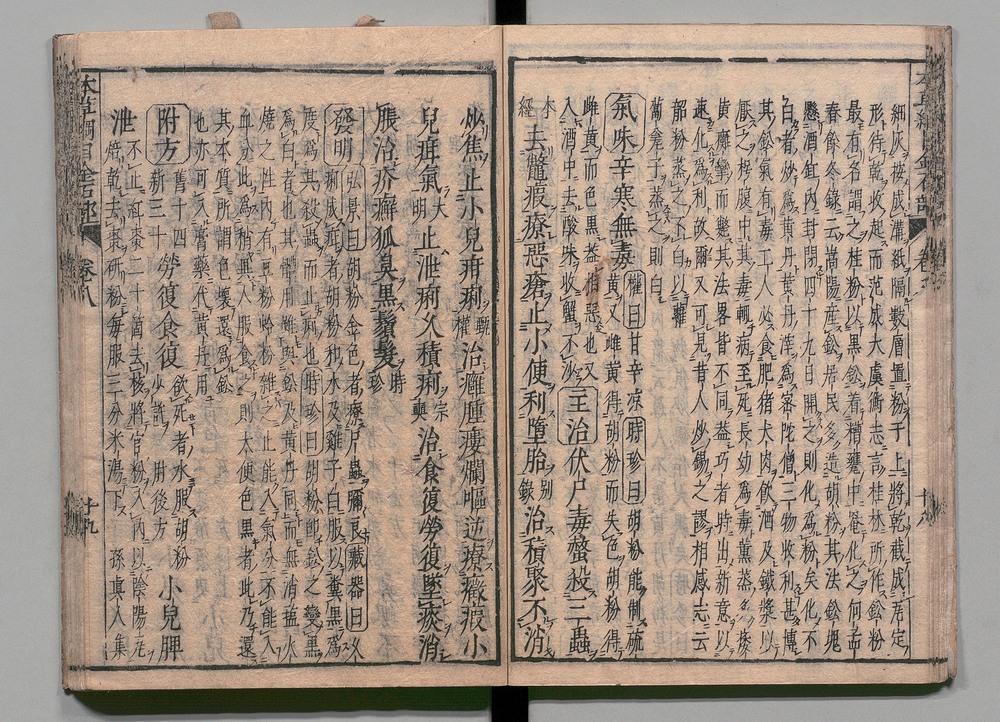 細灰按成溝紙隔數層置粉于上將乾截成瓦定
形待乾收起而范成大虞衡志言桂林所作鉛粉
最有名謂之桂粉以黒鉛着糟甕中罨化之何孟
春餘冬録云嵩陽産鉛居民多造胡粉其法鉛塊
懸酒缸内封閉四十九日開之則化爲粉矣化不
白者炒爲黃丹黃丹滓爲密陀僧三物收利甚博
其鉛氣有毒工人必食肥猪犬肉飲酒及鐵漿以
厭之枵腹中其毒輒病至死長幼爲毒熏蒸多痿
黃癱攣而斃其法畧皆不同盖巧者時出新意以
速化爲利故爾又可見昔人炒錫之謬相感志云
韶粉蒸之不白以蘿
蔔瓮子蒸之則白
氣味辛寒無毒 權曰甘辛凉時珍曰胡粉能制硫
黃又雌黃得胡粉而失色胡粉得
雌黃而色黒盖相惡也又
入酒中去酸味收蟹不沙 主治伏尸毒螫殺三蟲
本經 去鼈瘕療惡瘡止小便利墮胎 別録 治積聚不消
炊焦止小兒疳痢 甄權 治癰腫瘻爛嘔逆療癥瘕小
兒疳氣 大明 止泄痢久積痢 宗奭 治食復勞復墜痰消
脹治疥癬狐臭黒鬚髮 時珍
發明 弘景曰胡粉金色者療尸蟲彌良藏器曰久
痢成疳者胡粉和水及雞子白服以糞黒爲
度爲其殺蟲而止痢也時珍曰胡粉即鉛之變黒
爲白者也其體用雖與鉛及黃丹同而無消鹽火
燒之性内有豆粉蛤粉雜之止能入氣分不能入
血分此爲稍異人服食之則大便色黒者此乃還
其本質所謂色壞還爲鉛
也亦可入膏藥代黃丹用
附方 舊十四 新三十 勞復食復 欲死者水服胡粉
少許 肘後方 小兒脾
泄 不止紅棗二十箇去核將官粉入内以陰陽瓦
焙乾去棗研粉毎服三分米湯下 孫真人集
本草綱目金石部 卷八 十九